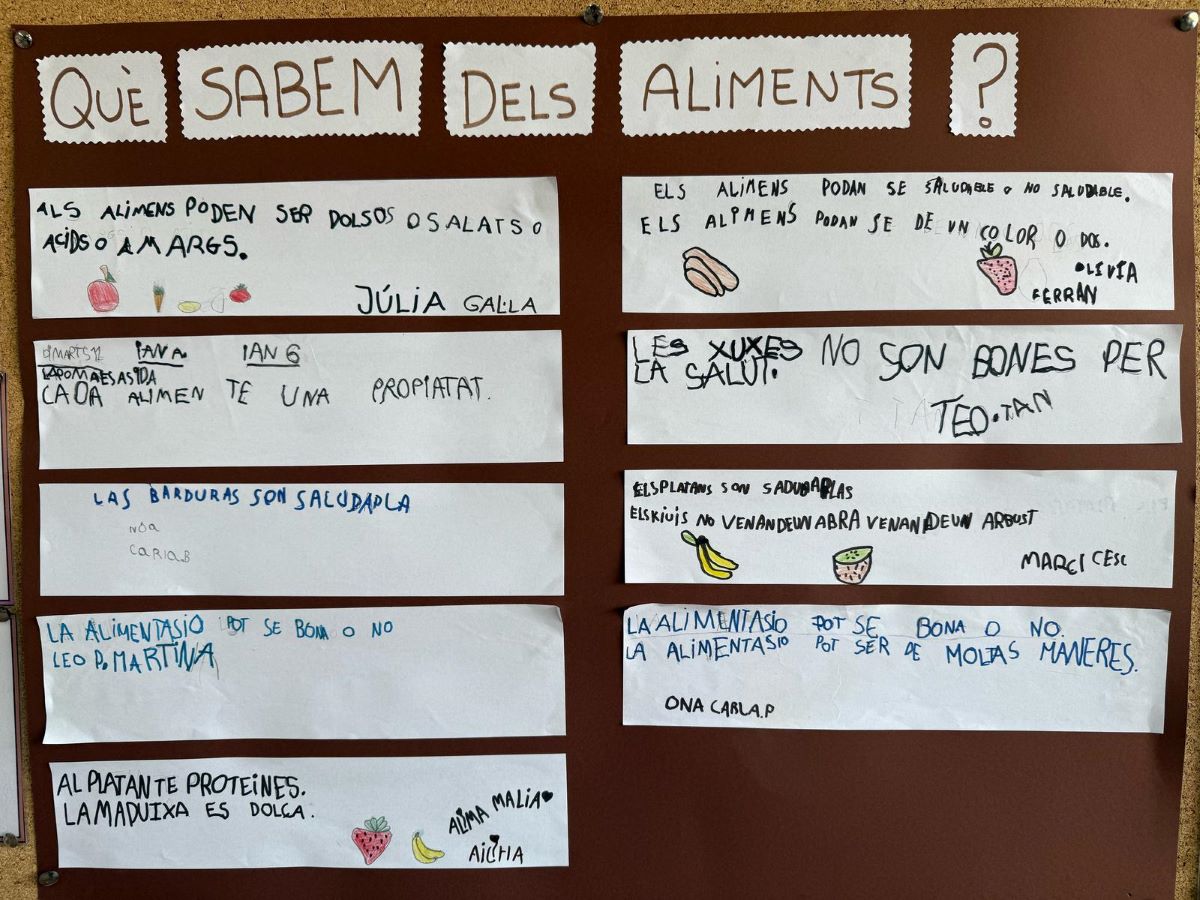 QUÈ SABEM DELS ALIMENTS ?
ALS ALIMENS PODEN SER DOLSOS O SALATS O
ACIDS O AMARGS.
JÚLIA GAL·LA
DIMARTS 12 JANA JAN G
LAPOMAESASIDA
CADA ALIMEN TE UNA PROPIATAT.
LAS BARDURAS SON SALUDAPLA
NOA
CARLA.B
LA ALIMENTASIO POT SE BONA O NO
LEO P. MARTINA
AL PLATAN TE PROTEINES.
LA MADUIXA ES DOLÇA.
ALIMA MALIA
ELS ALIMENS PODAN SE SALUDABLE O NO SALUDABLE.
ELS ALIMENS PODAN SE DE UN COLOR O DOS.
OLIVIA
FERRAN
LES XUXES NO SON BONES PER
LA SALUT.
TEO·TAN
ELSPLATANS SON
ELSKIUIS NO VENANDEUNABRA VENANDEUN ARBUST
MARC I CESC
LA ALIMENTASIO POT SE BONA O NO.
LA ALIMENTASIO POT SER DE MOLTAS MANERES.
ONA CARLA.P